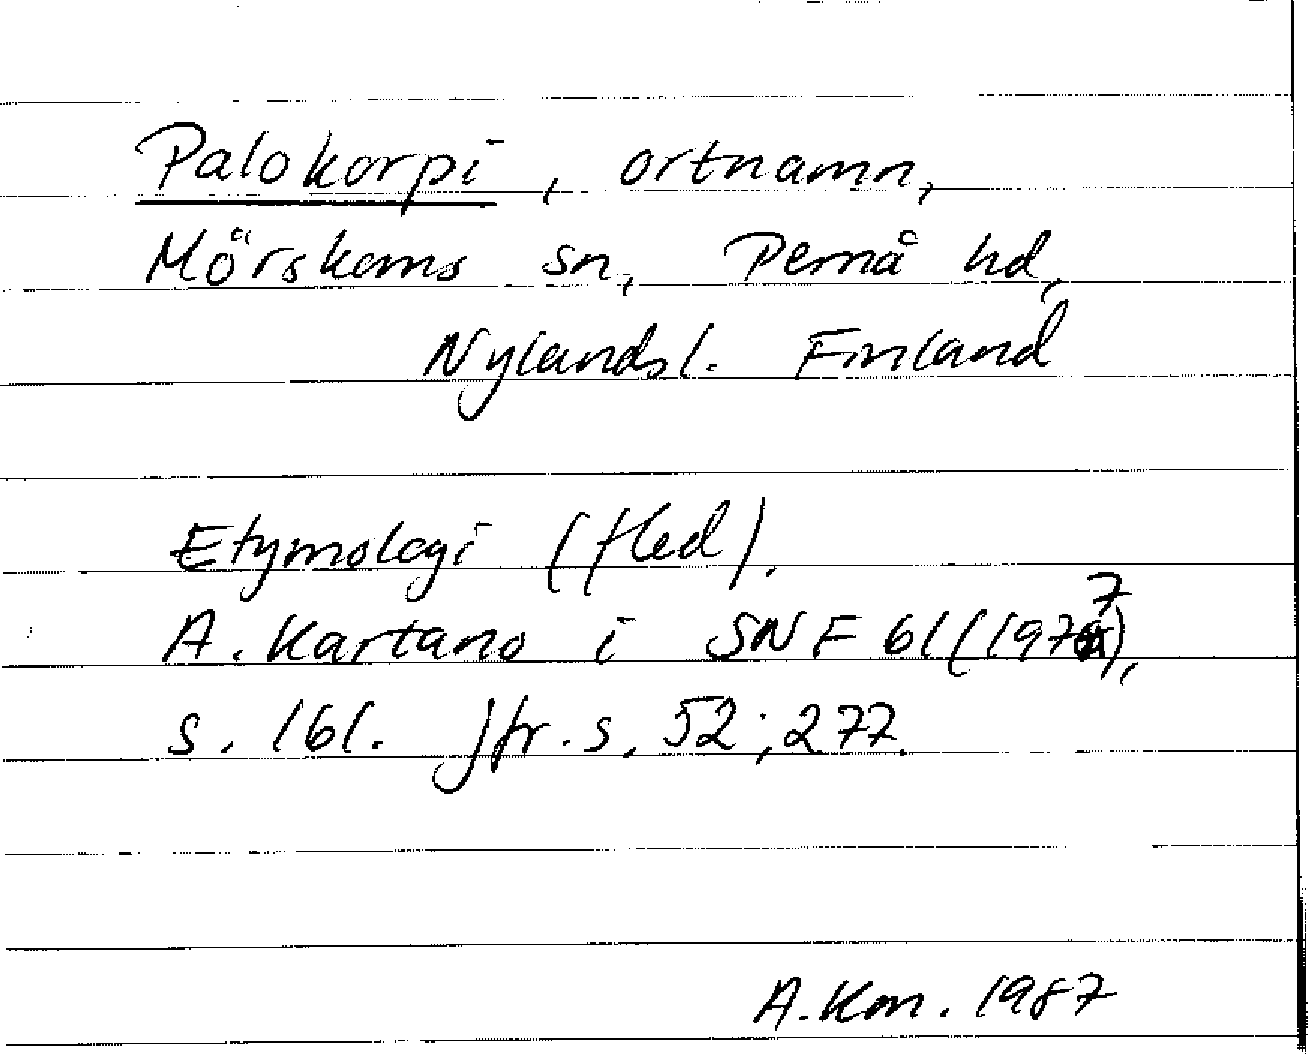 Palokorpi, ortnamn,
Mörskoms sn, Pernå hd,
Nylandsl. Finland
Etymologi (fled).
A. Kartano i SNF 61 (1977),
s. 161. Jfr. s. 52; 277.
A. Kon. 1987